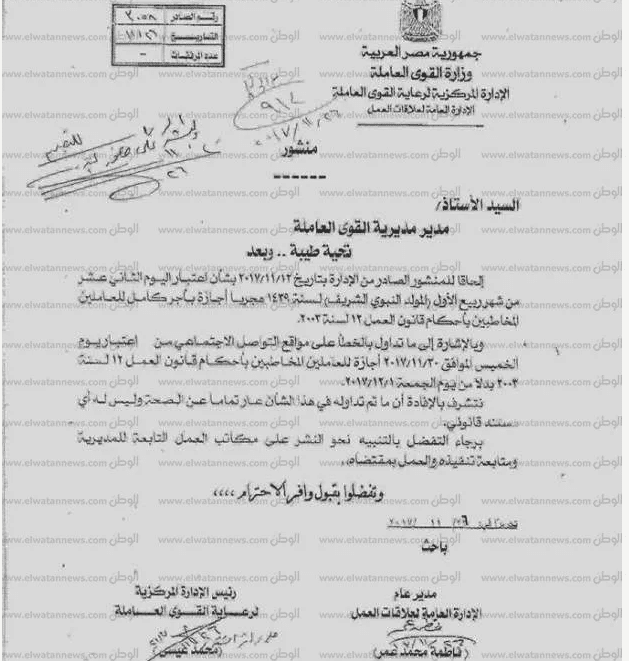 رقم الصادر ٣٠٥٨
التاريخ ١١/٢٦
عدد المرفقات -
جمهورية مصر العربية
وزارة القوى العاملة
الإدارة المركزية لرعاية القوى العاملة
الإدارة العامة لعلاقات العمل
٩١٤
٢٠١٧/١١/٢٦
منشور
السيد الأستاذ/
مدير مديرية القوى العاملة
تحية طيبة .. وبعد
إلحاقا للمنشور الصادر من الإدارة بتاريخ ٢٠١٧/١١/١٢ بشأن اعتبار اليوم الثانى عشر
من شهر ربيع الأول (المولد النبوي الشريف) لسنة ١٤٣٩ هجريا أجازة بأجر كامل للعاملين
المخاطبين بأحكام قانون العمل ١٢ لسنة ٢٠٠٣.
وبالإشارة إلى ما تداول بالخطأ على مواقع التواصل الاجتماعي من اعتبار يوم
الخميس الموافق ٢٠١٧/١١/٣٠ أجازة للعاملين المخاطبين بأحكام قانون العمل ١٢ لسنة
٢٠٠٣ بدلا من يوم الجمعة ٢٠١٧/١٢/١.
نتشرف بالإفادة أن ما تم تداوله في هذا الشأن عار تماما عن الصحة وليس له أي
سند قانوني.
برجاء التفضل بالتنبيه نحو النشر على مكاتب العمل التابعة للمديرية
ومتابعة تنفيذه والعمل بمقتضاه،
وتفضلوا بقبول وافر الاحترام ،،،،
تحريرا في ٢٠١٧/ ١١ /٢٦
باحث
مدير عام
الإدارة العامة لعلاقات العمل
(فاطمة محمد عمر)
رئيس الإدارة المركزية
لرعاية القوى العاملة
(محمد عيسى)
الوطن www.elwatannews.com